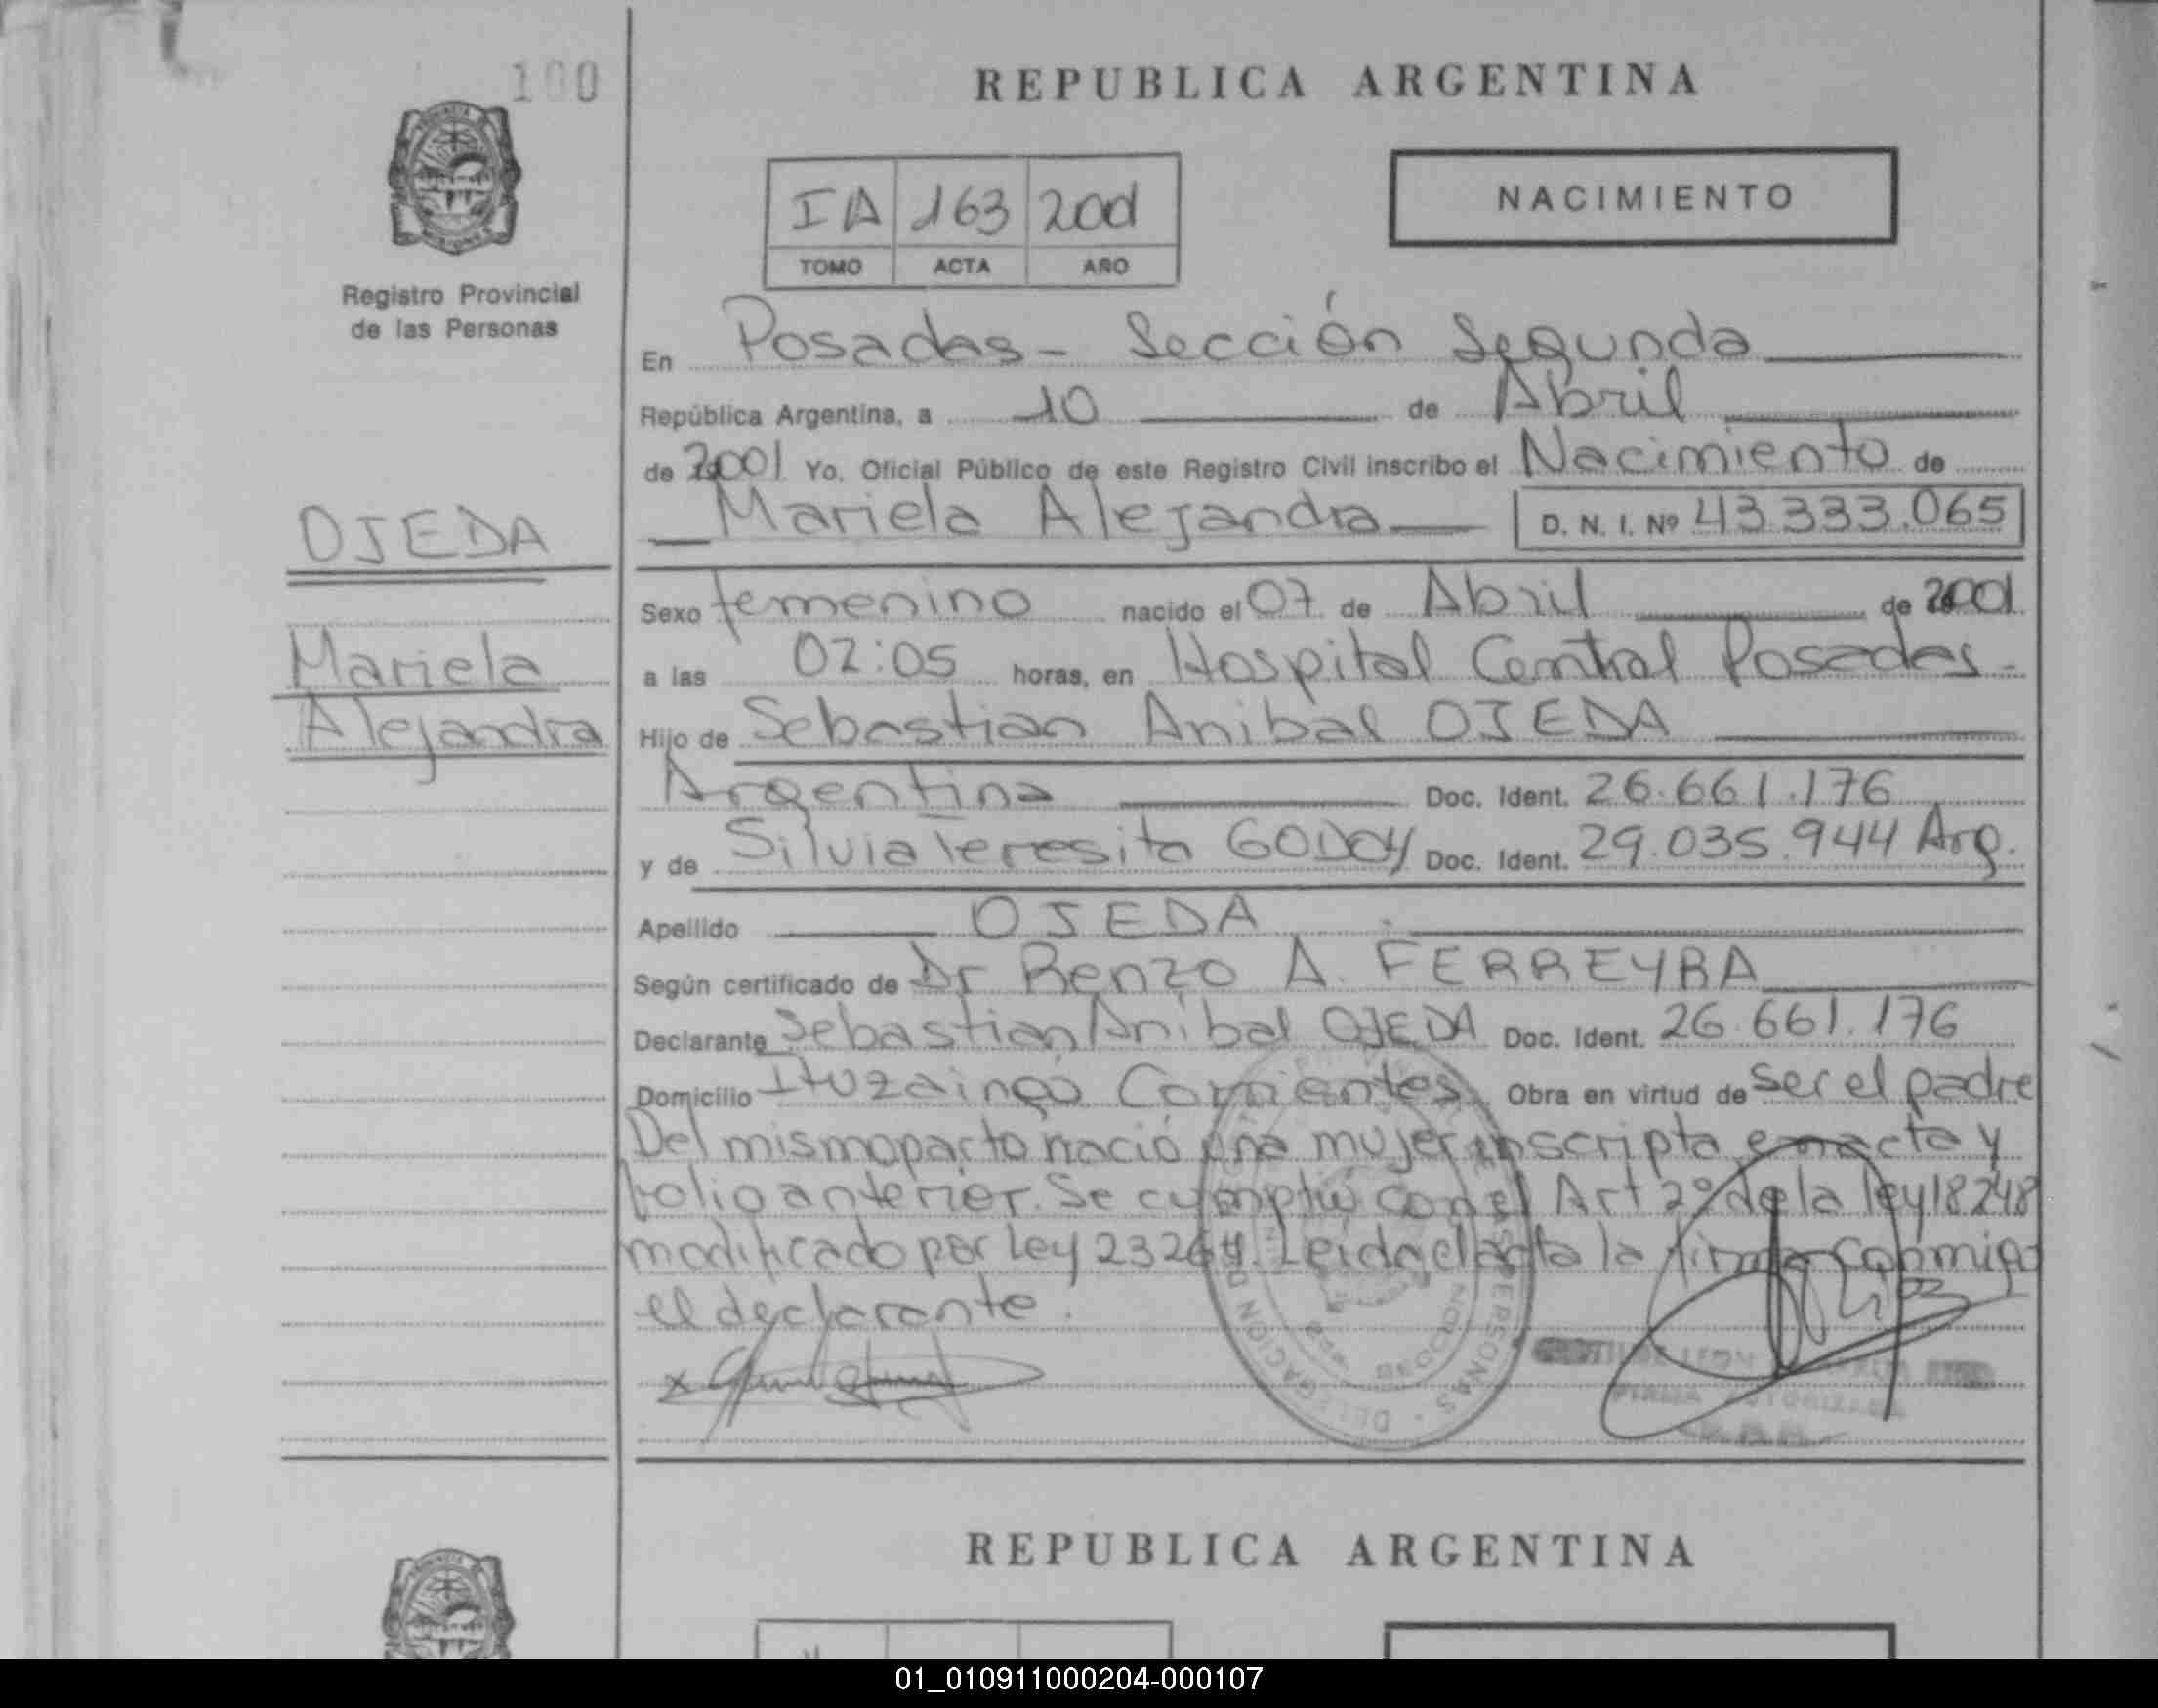 100
REPUBLICA ARGENTINA
IA 163 2001
TOMO ACTA AÑO
NACIMIENTO
Registro Provincial
de las Personas
En Posadas - Sección Segunda
República Argentina, a 10 de Abril
de 2001 Yo, Oficial Público de este Registro Civil inscribo el Nacimiento de
Mariela Alejandra D. N. I. Nº 43.333.065
OJEDA
Mariela
Alejandra
Sexo femenino nacido el 07 de Abril de 2001
a las 02:05 horas, en Hospital Central Posadas -
Hijo de Sebastian Anibal OJEDA
Argentina Doc. Ident. 26.661.176
y de Silvia Teresita GODOY Doc. Ident. 29.035.944 Arg.
Apellido OJEDA
Según certificado de Dr Renzo A. FERREYRA
Declarante Sebastian Anibal OJEDA Doc. Ident. 26.661.176
Domicilio Ituzaingó Corrientes Obra en virtud de Ser el padre
Del mismo parto nació una mujer inscripta en acta y
folio anterior. Se cumplió con el Art 2º de la ley 18248
modificado por Ley 23264. Leída el acta la firma conmigo
el declarante.
DELEGACION PERSONAS
FIRMA AUTORIZADA
REPUBLICA ARGENTINA
01_010911000204-000107